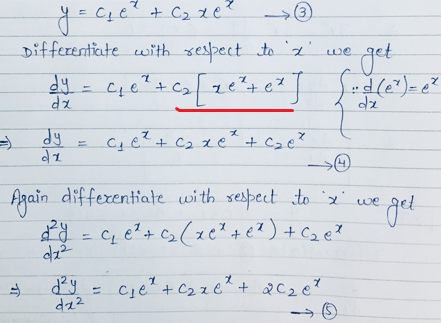 y = c₁eˣ + c₂xeˣ → ③
Differentiate with respect to 'x' we get
dy/dx = c₁eˣ + c₂[xeˣ + eˣ] {∵ d(eˣ)/dx = eˣ
⇒ dy/dx = c₁eˣ + c₂xeˣ + c₂eˣ
→ ④
Again differentiate with respect to 'x' we get
d²y/dx² = c₁eˣ + c₂(xeˣ + eˣ) + c₂eˣ
⇒ d²y/dx² = c₁eˣ + c₂xeˣ + 2c₂eˣ
→ ⑤